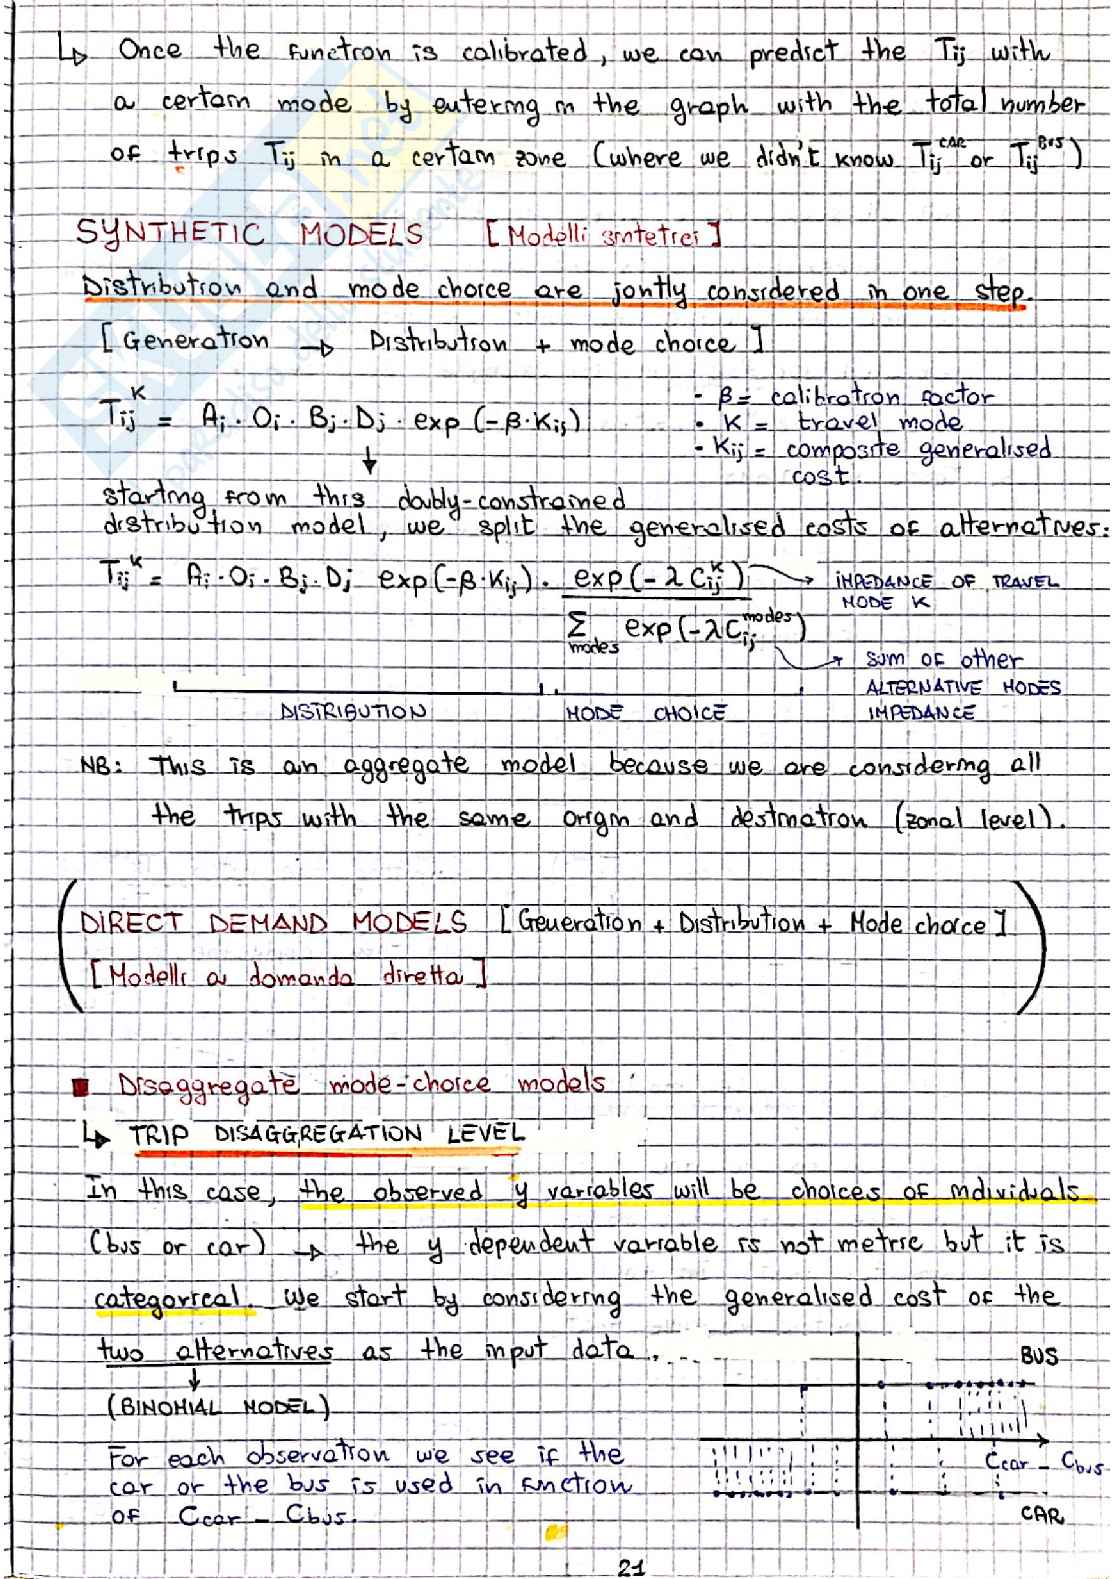 ↳ Once the function is calibrated, we can predict the Tij with
a certain mode by entering in the graph with the total number
of trips Tij in a certain zone (where we didn't know Tij^CAR or Tij^BUS)
SYNTHETIC MODELS [Modelli sintetici]
Distribution and mode choice are jontly considered in one step.
[Generation → Distribution + mode choice]
Tij^K = Ai · Oi · Bj · Dj · exp (-β·Kij)
- β = calibration factor
- K = travel mode
- Kij = composite generalised
cost.
↓
starting from this doubly-constrained
distribution model, we split the generalised costs of alternatives:
Tij^K = Ai·Oi·Bj·Dj exp(-β·Kij) · exp(-λ Cij^K) → IMPEDANCE OF TRAVEL
MODE K
Σ modes exp(-λCij^modes) → SUM OF other
ALTERNATIVE MODES
IMPEDANCE
DISTRIBUTION MODE CHOICE
NB: This is an aggregate model because we are considering all
the trips with the same origin and destination (zonal level).
DIRECT DEMAND MODELS [Generation + Distribution + Mode choice]
[Modelli a domanda diretta]
■ Disaggregate mode-choice models
↳ TRIP DISAGGREGATION LEVEL
In this case, the observed y variables will be choices of individuals
(bus or car) → the y dependent variable is not metric but it is
categorical. We start by considering the generalised cost of the
two alternatives as the input data.
↓
(BINOMIAL MODEL)
For each observation we see if the
car or the bus is used in function
of Ccar - Cbus.
BUS
Ccar - Cbus
CAR
21